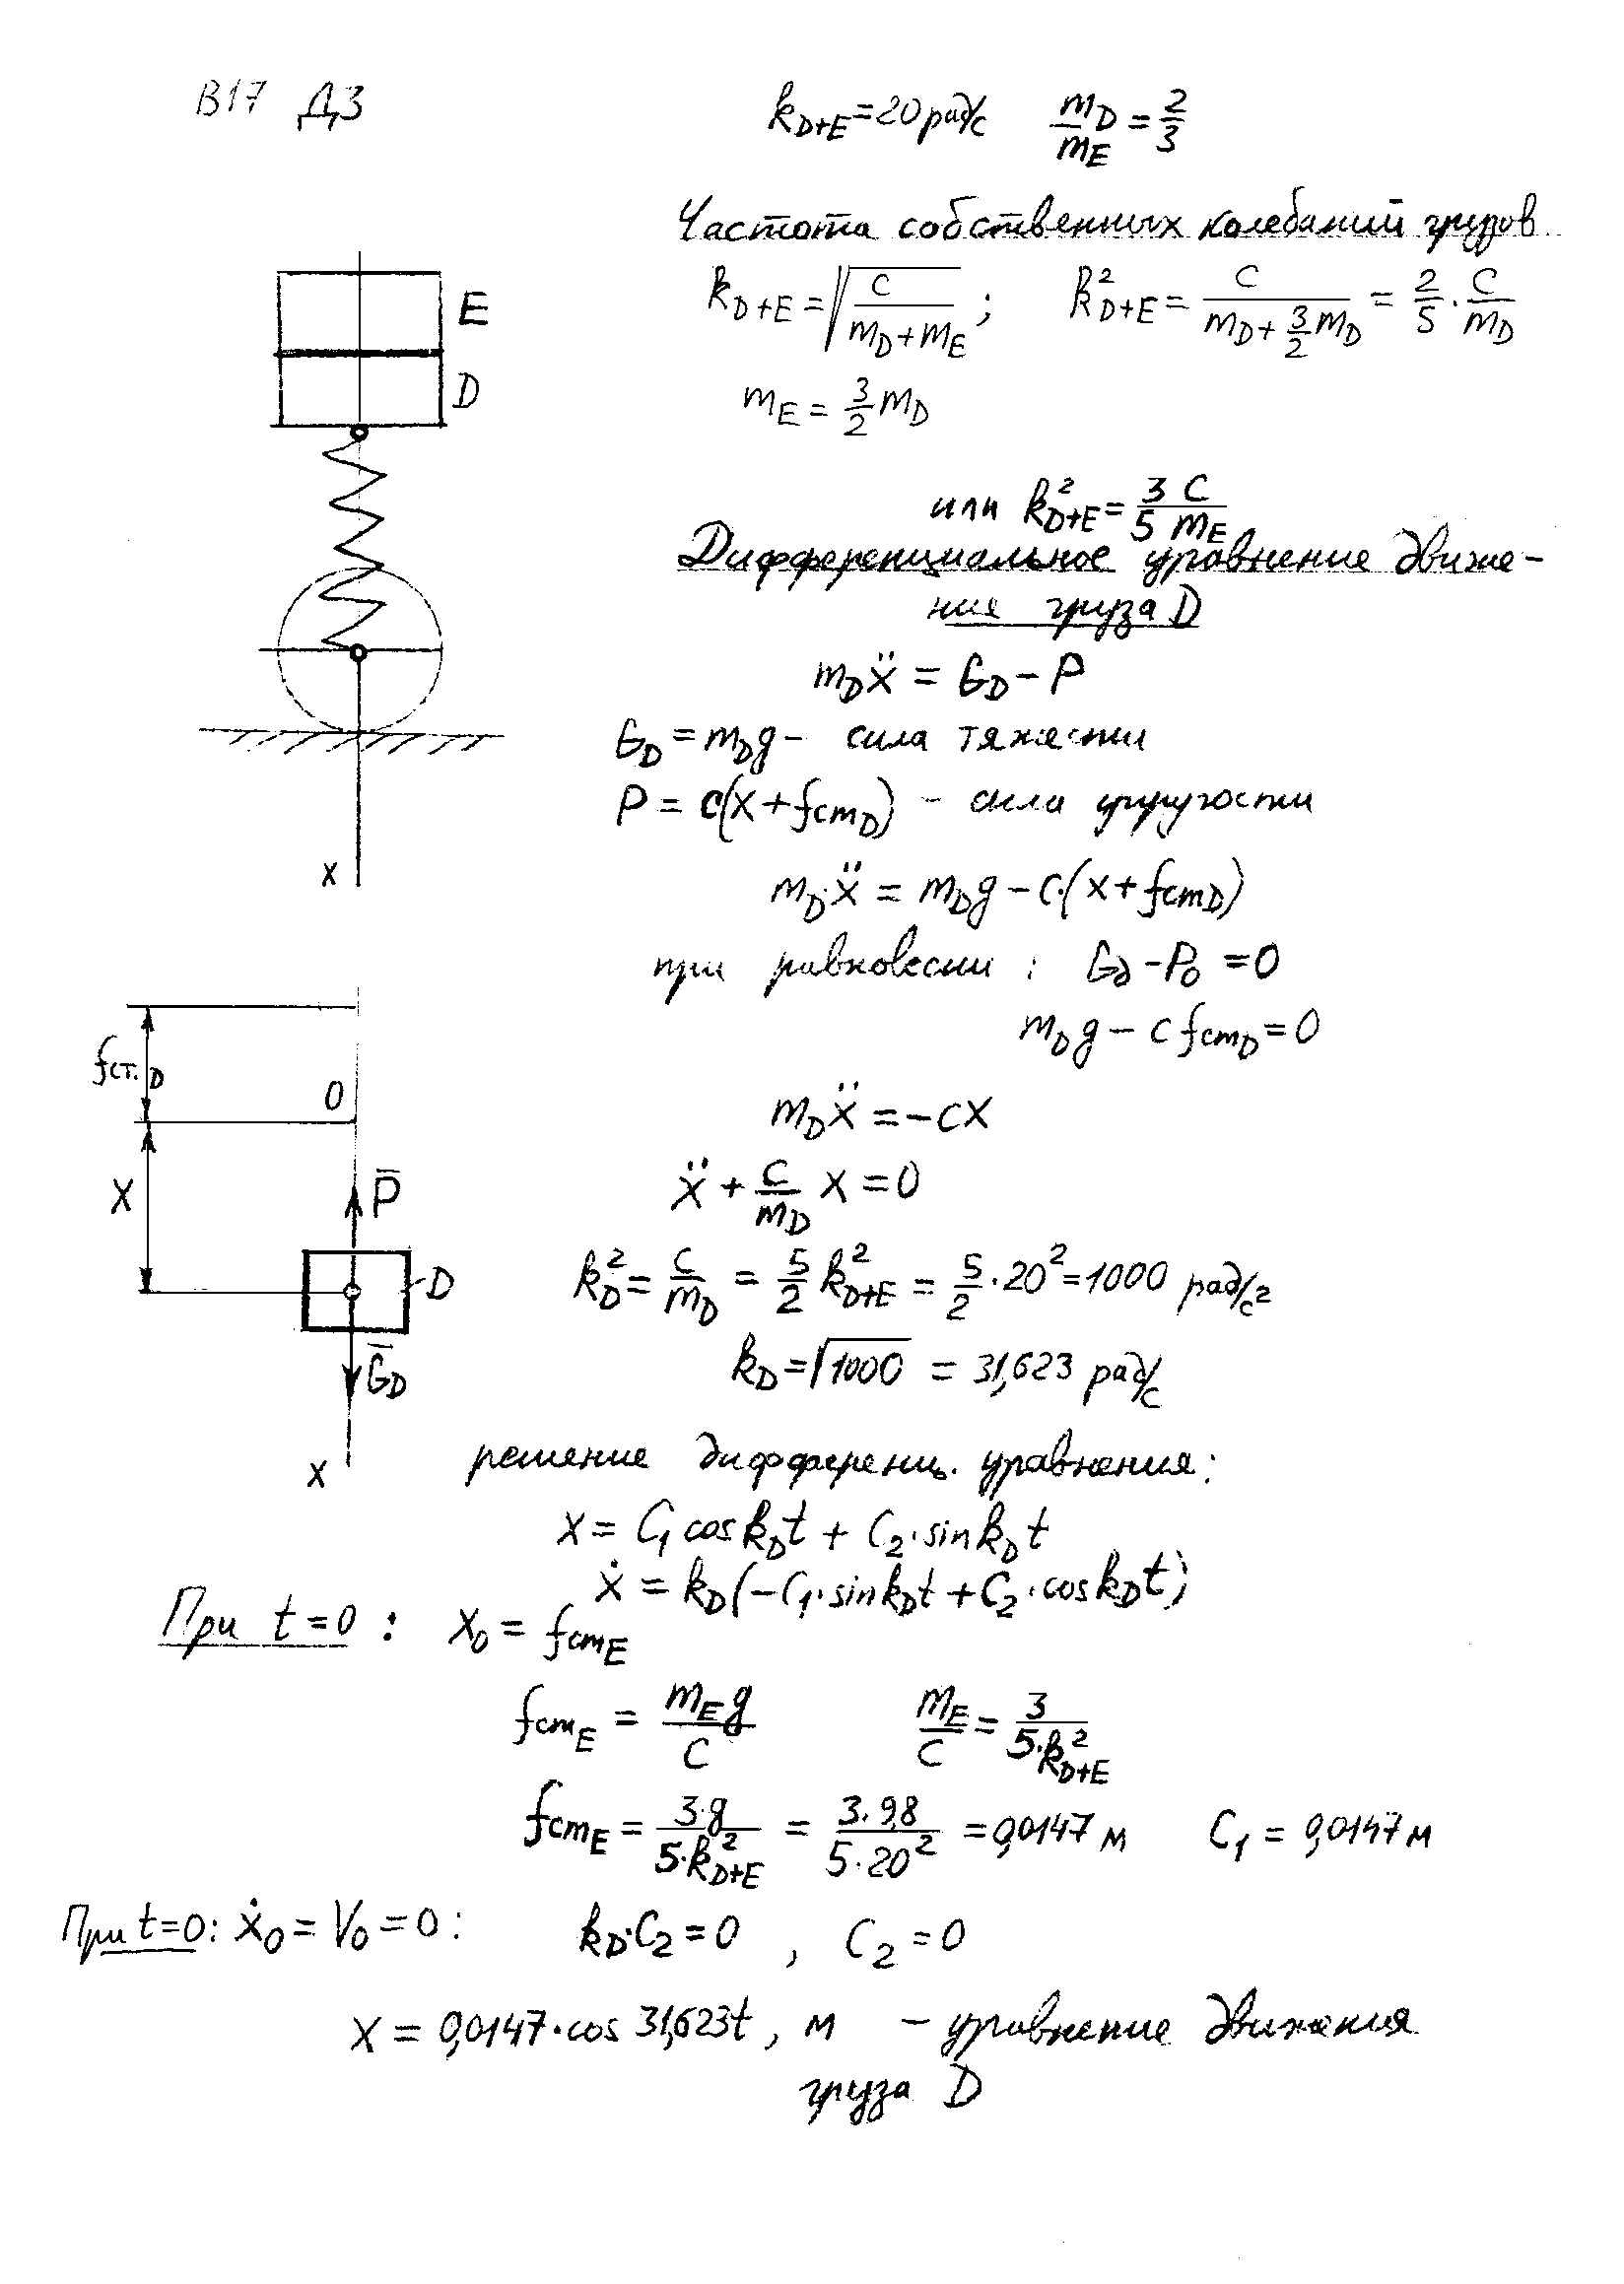 В17 Д3
k_{D+E} = 20 рад/с   m_D/m_E = 2/3
Частота собственных колебаний грузов
k_{D+E} = √(c/(m_D+m_E)) ;   k²_{D+E} = c/(m_D + 3/2 m_D) = 2/5 · c/m_D
m_E = 3/2 m_D
или k²_{D+E} = 3/5 c/m_E
Дифференциальное уравнение движе-
ние груза D
m_D ẍ = G_D - P
G_D = m_D g - сила тяжести
P = c(x + f_{cm_D}) - сила упругости
m_D·ẍ = m_D g - c·(x + f_{cm_D})
при равновесии : G_д - P_0 = 0
m_D g - c f_{cm_D} = 0
m_D ẍ = -cx
ẍ + c/m_D x = 0
k²_D = c/m_D = 5/2 k²_{D+E} = 5/2 · 20² = 1000 рад/с²
k_D = √1000 = 31,623 рад/с
решение дифференц. уравнения:
x = C_1 cos k_D t + C_2 · sin k_D t
ẋ = k_D (-C_1 · sin k_D t + C_2 · cos k_D t)
При t = 0 :   x_0 = f_{cm_E}
f_{cm_E} = m_E g/c   m_E/c = 3/(5·k²_{D+E})
f_{cm_E} = 3·g/(5·k²_{D+E}) = 3·9,8/(5·20²) = 0,0147 м   C_1 = 0,0147 м
При t=0: ẋ_0 = V_0 = 0 :   k_D·C_2 = 0 , C_2 = 0
x = 0,0147 · cos 31,623t , м - уравнение движения
груза D
E
D
x
f_{ст. D}
0
x
P̄
D
Ḡ_D
x